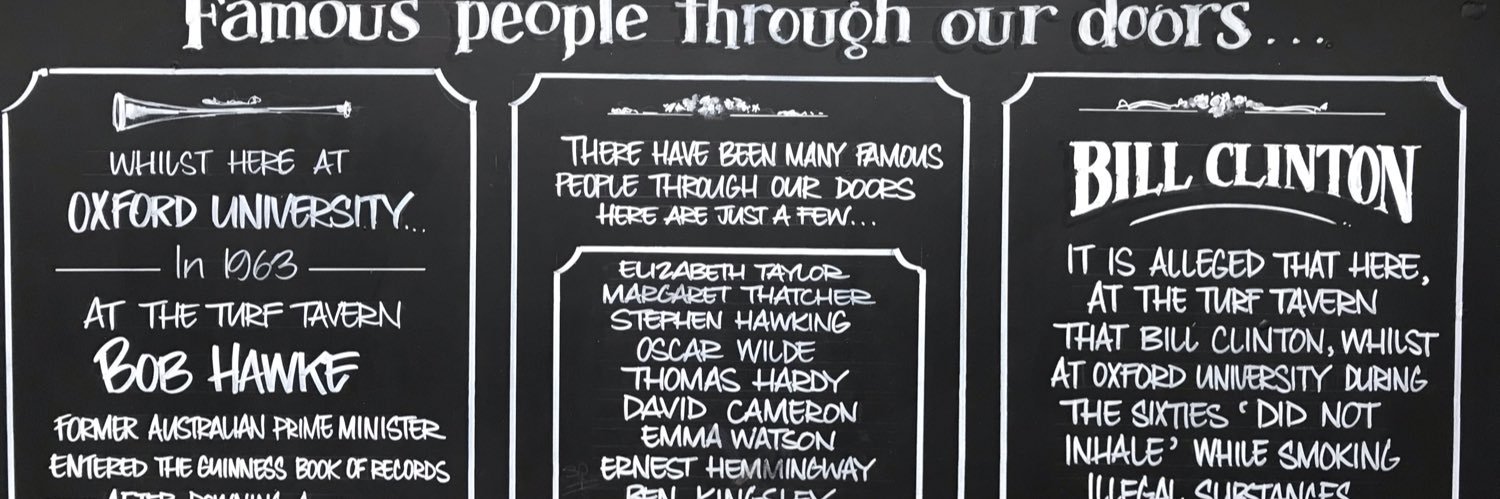 Famous people through our doors...
WHILST HERE AT
OXFORD UNIVERSITY...
In 1963
AT THE TURF TAVERN
BOB HAWKE
FORMER AUSTRALIAN PRIME MINISTER
ENTERED THE GUINNESS BOOK OF RECORDS
AFTER DOWNING A
THERE HAVE BEEN MANY FAMOUS
PEOPLE THROUGH OUR DOORS
HERE ARE JUST A FEW...
ELIZABETH TAYLOR
MARGARET THATCHER
STEPHEN HAWKING
OSCAR WILDE
THOMAS HARDY
DAVID CAMERON
EMMA WATSON
ERNEST HEMMINGWAY
BEN KINGSLEY
BILL CLINTON
IT IS ALLEGED THAT HERE,
AT THE TURF TAVERN
THAT BILL CLINTON, WHILST
AT OXFORD UNIVERSITY DURING
THE SIXTIES 'DID NOT
INHALE' WHILE SMOKING
ILLEGAL SUBSTANCES